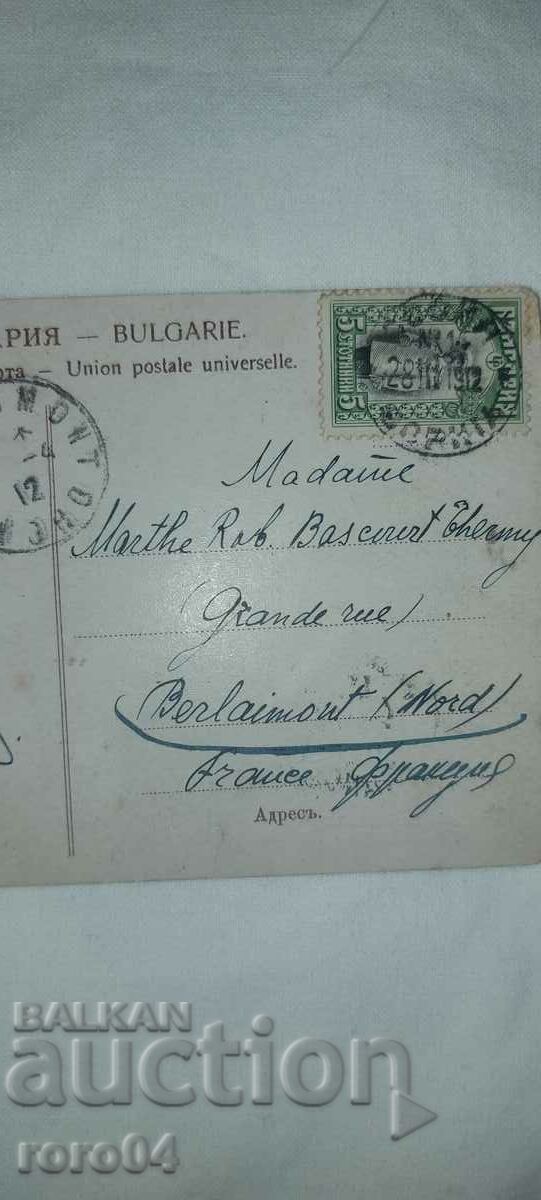 АРИЯ — BULGARIE.
рта – Union postale universelle.
5 СТОТИНКИ 5
28 III 1912
MONT
12
Madame
Marthe Rob. Bascourt Thermy
(Grande rue)
Berlaimont (Nord)
France Франция
Адресъ.
BALKAN
auction
roro04